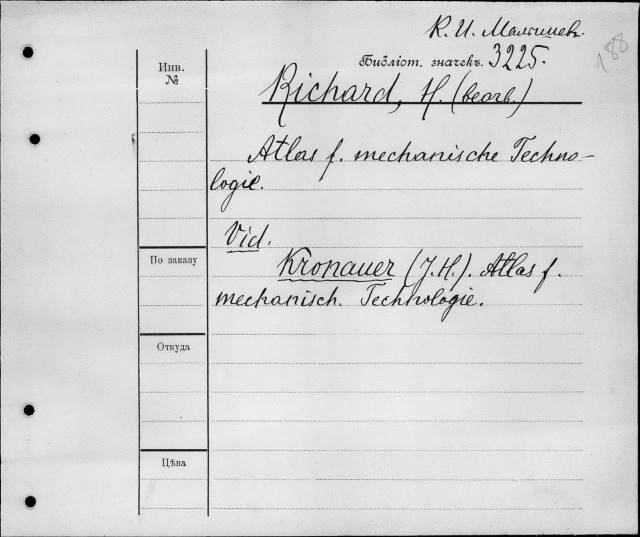 К. И. Малышев.
188
Инв.
№
Библіот. значекъ. 3225.
Richard, H. (bearb.)
Atlas f. mechanische Techno-
logie.
Vid.
По заказу
Kronauer (J.H.). Atlas f.
mechanisch. Technologie.
Откуда
Цѣна